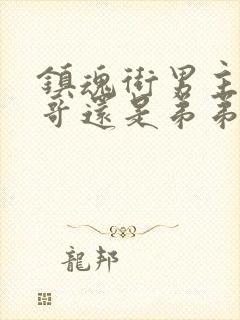 鎮魂街男主
哥還是弟弟
龍邦